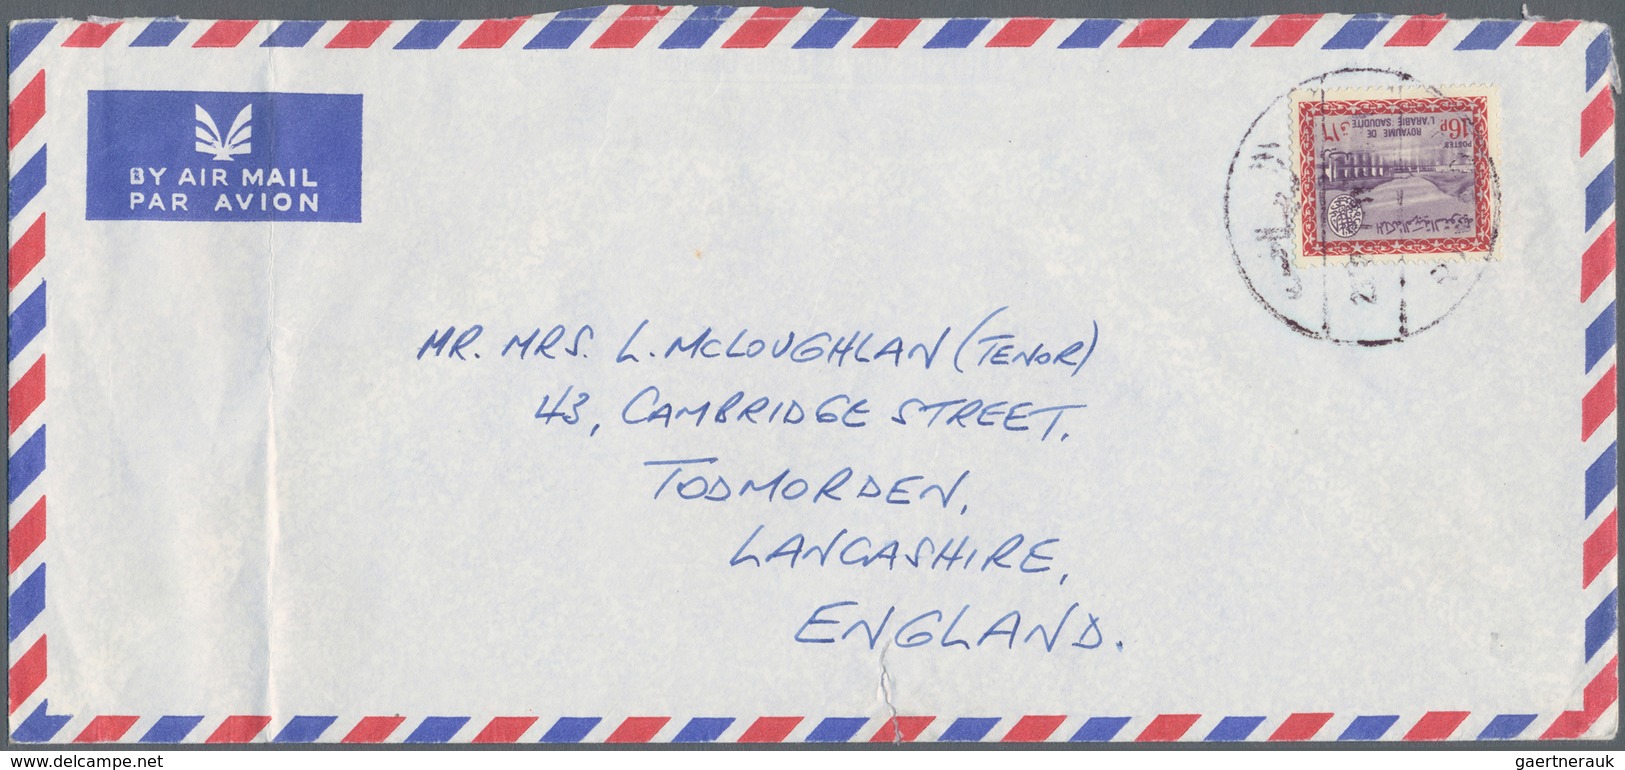 BY AIR MAIL
PAR AVION
16P
POSTES
ROYAUME DE
L'ARABIE SAOUDITE
١٦
المملكة العربية السعودية
MR. MRS. L. MCLOUGHLAN (TENOR)
43, CAMBRIDGE STREET,
TODMORDEN,
LANCASHIRE,
ENGLAND.
www.delcampe.net
gaertnerauk